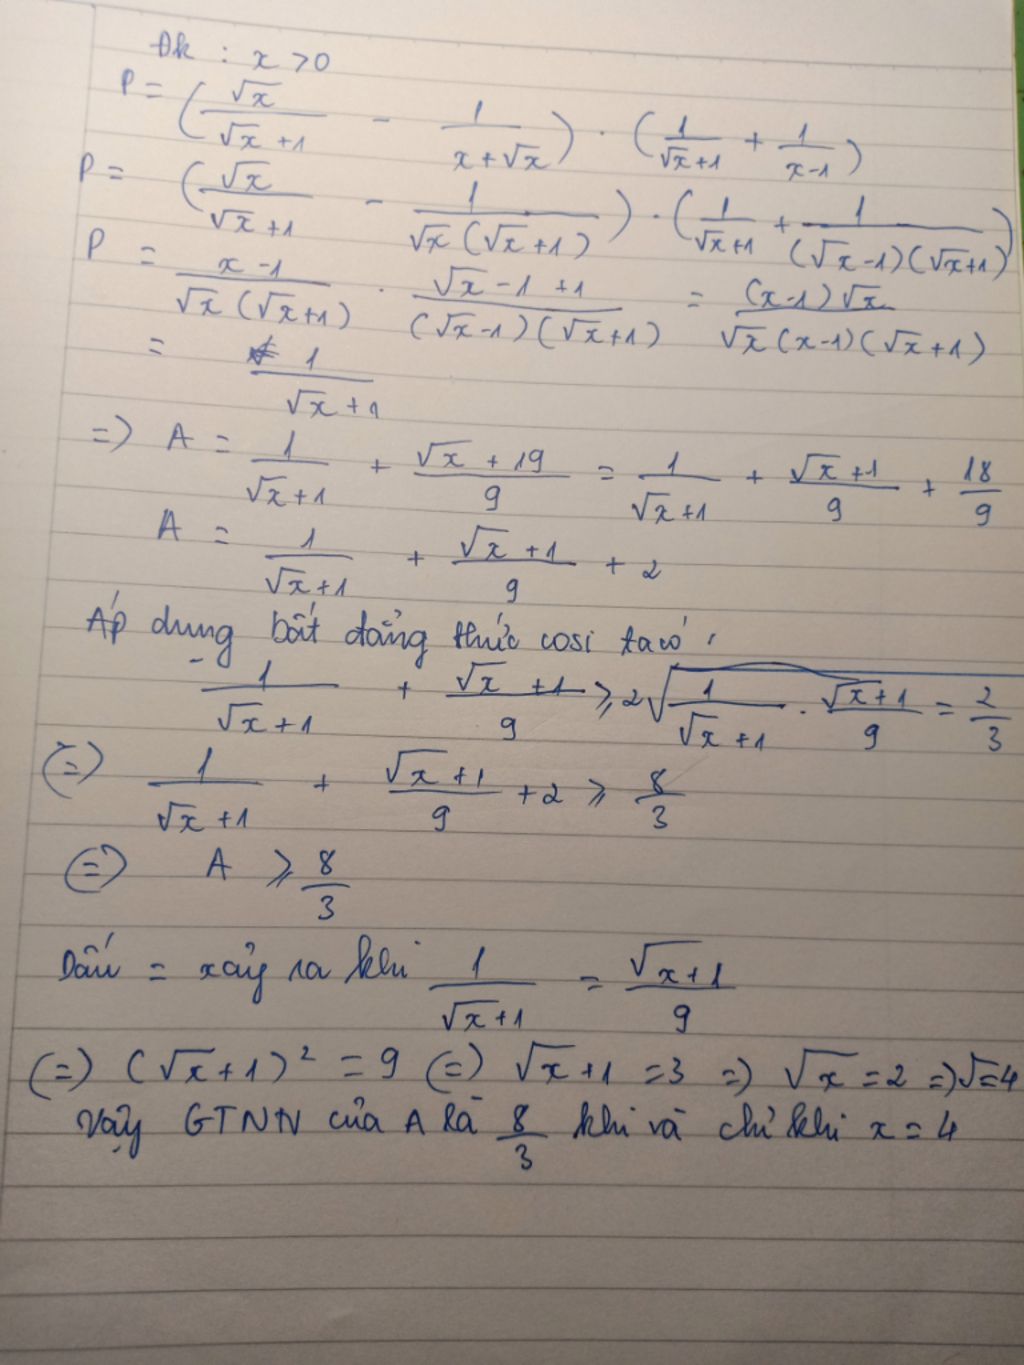 Đk : x > 0
P = (√x/(√x + 1) - 1/(x + √x)) . (1/(√x + 1) + 1/(x - 1))
P = (√x/(√x + 1) - 1/(√x (√x + 1))) . (1/(√x + 1) + 1/((√x - 1)(√x + 1)))
P = (x - 1)/(√x (√x + 1)) . (√x - 1 + 1)/((√x - 1)(√x + 1)) = ((x - 1) √x)/(√x (x - 1)(√x + 1))
= 1/(√x + 1)
=> A = 1/(√x + 1) + (√x + 19)/9 = 1/(√x + 1) + (√x + 1)/9 + 18/9
A = 1/(√x + 1) + (√x + 1)/9 + 2
Áp dụng bất đẳng thức cosi ta có :
1/(√x + 1) + (√x + 1)/9 ≥ 2√(1/(√x + 1) . (√x + 1)/9) = 2/3
(=) 1/(√x + 1) + (√x + 1)/9 + 2 ≥ 8/3
(=) A ≥ 8/3
Dấu = xảy ra khi 1/(√x + 1) = (√x + 1)/9
(=) (√x + 1)² = 9 (=) √x + 1 = 3 => √x = 2 => √ = 4
Vậy GTNN của A là 8/3 khi và chỉ khi x = 4